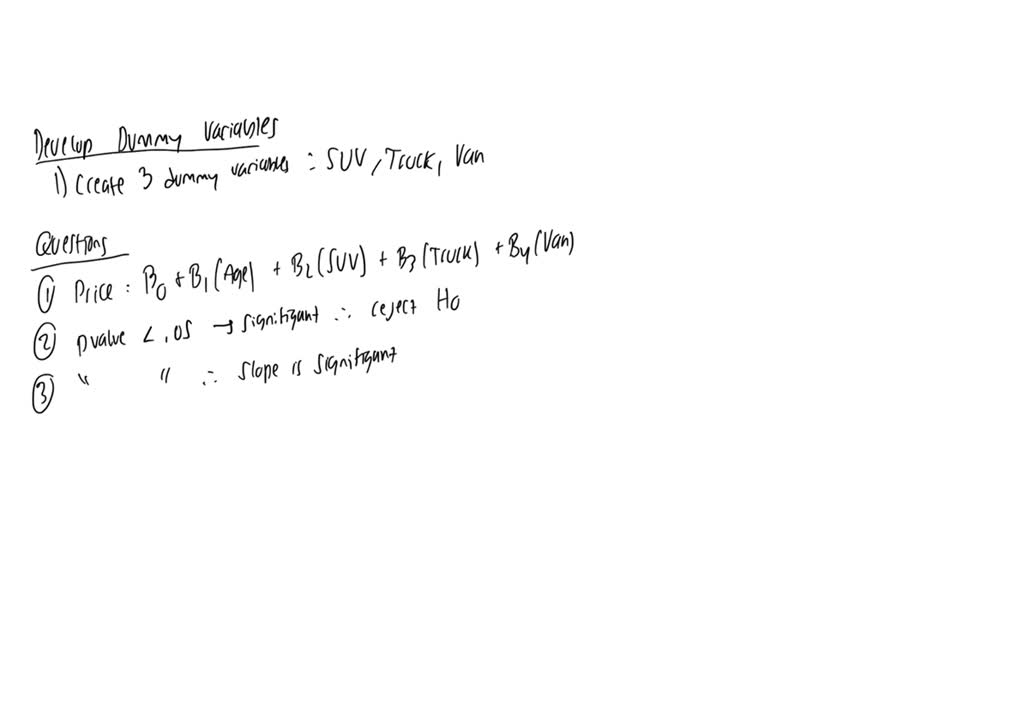 Develop Dummy Variables
1) Create 3 dummy variables : SUV, Truck, Van
Questions
① Price : B₀ + B₁(Age) + B₂(SUV) + B₃(Truck) + B₄(Van)
② pvalue < .05 → significant ∴ reject H0
③ " " ∴ slope is significant